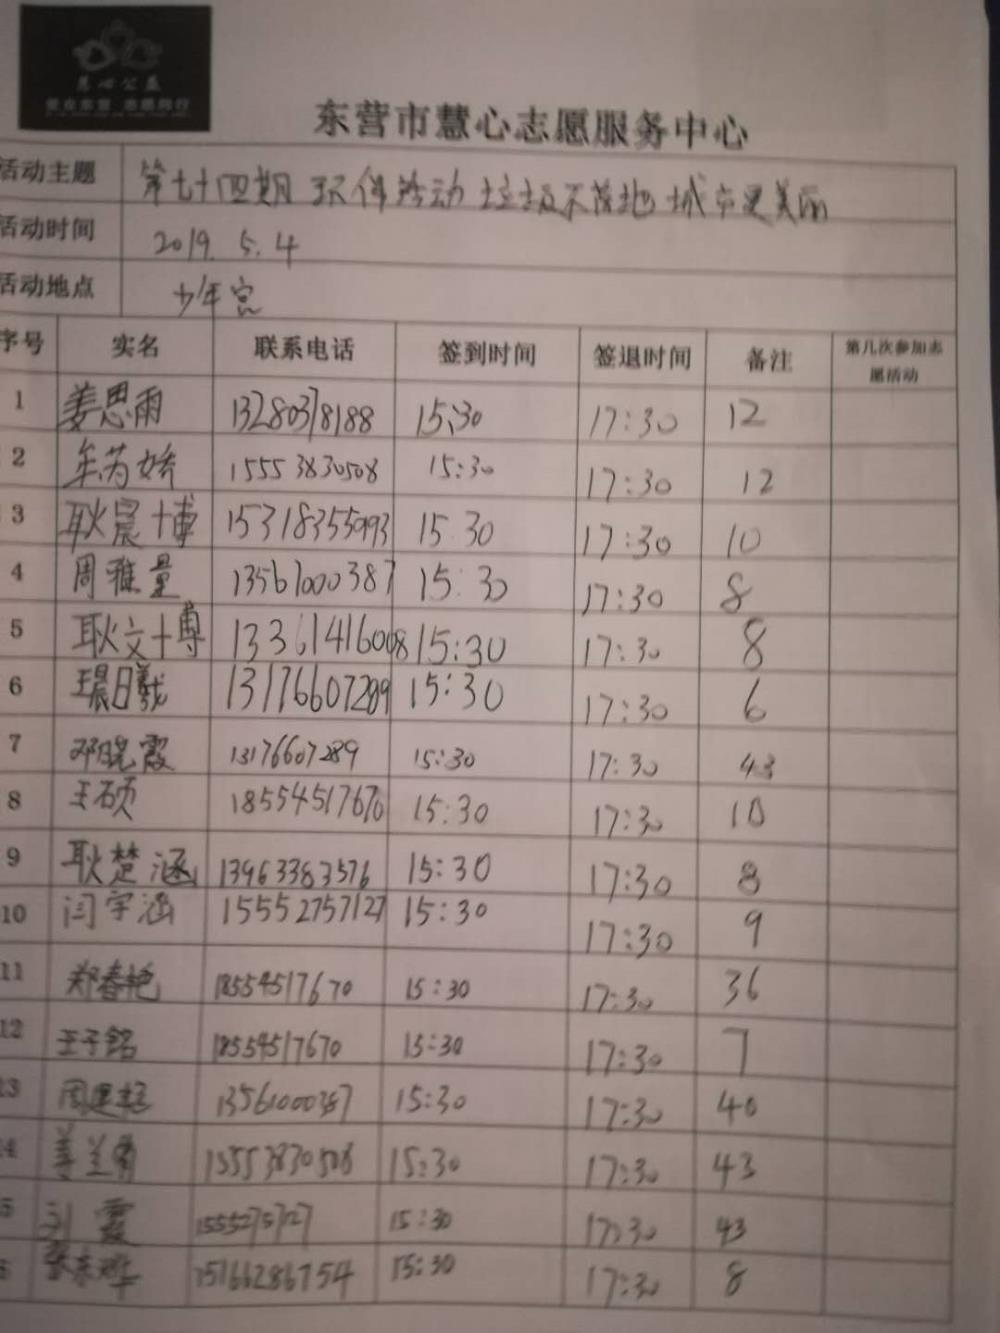 慧心公益
东营市慧心志愿服务中心
活动主题 第七十四期 环保活动 垃圾不落地 城市更美丽
活动时间 2019. 5. 4
活动地点 少年宫
序号 实名 联系电话 签到时间 签退时间 备注 第几次参加志愿活动
1 姜思雨 13280378188 15:30 17:30 12
2 牟芮娇 15553830508 15:30 17:30 12
3 耿宸博 15318355993 15:30 17:30 10
4 周雅量 13561000387 15:30 17:30 8
5 耿文博 13361416008 15:30 17:30 8
6 王晨曦 13176607289 15:30 17:30 6
7 邓晓霞 13176607289 15:30 17:30 43
8 王硕 18554517670 15:30 17:30 10
9 耿楚涵 13963383576 15:30 17:30 8
10 闫宇涵 15552757127 15:30 17:30 9
11 郑春艳 18554517670 15:30 17:30 36
12 王子铭 18554517670 15:30 17:30 7
13 13561000387 15:30 17:30 40
14 姜兰勇 15553830508 15:30 17:30 43
5 刘霞 15552757127 15:30 17:30 43
6 15166286754 15:30 17:30 8